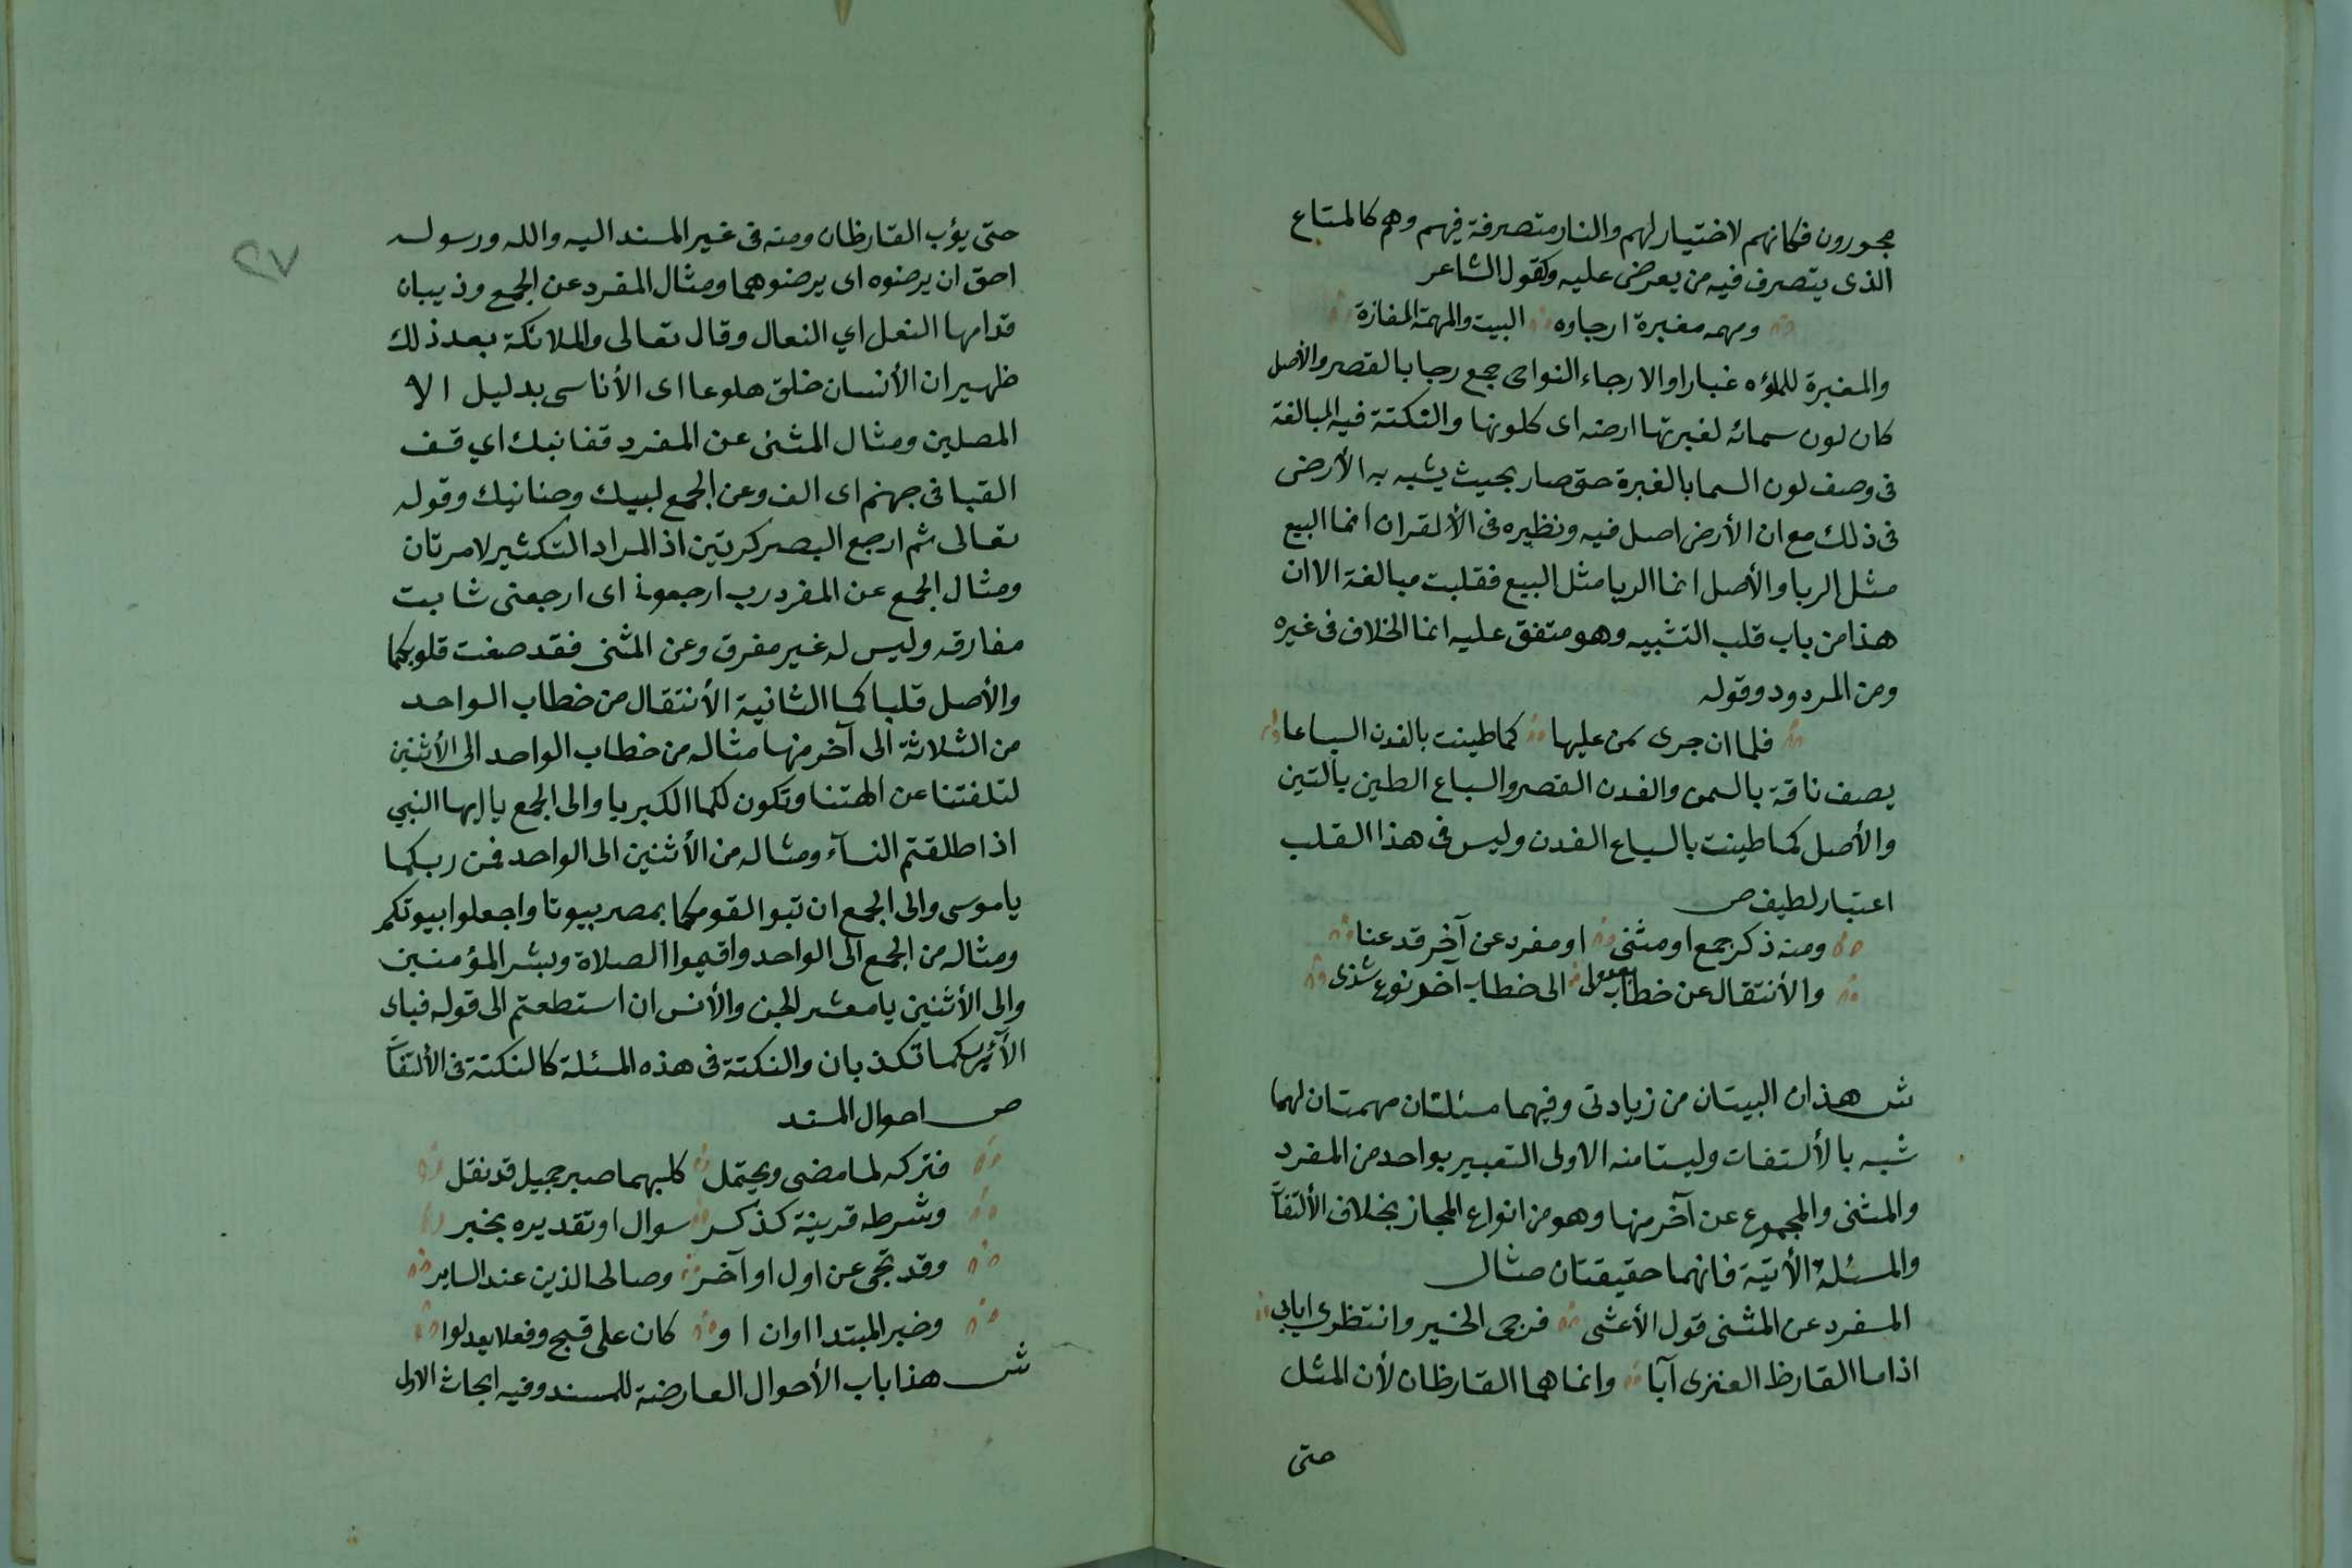 مجبورون فكانهم لا اختيار لهم والنار متصرفة فيهم وهم كالمتاع
الذى يتصرف فيه من يعرض عليه وكقول الشاعر
ومهمه مغبرة ارجاوه البيت والمهمة المفازة
والمغبرة للملؤه غبارا والارجاء النواحى جمع رجا بالقصر والأصل
كان لون سمائه لغبرتها ارضه اى كلونها والنكتة فيه المبالغة
فى وصف لون السما بالغبرة حتى صار بحيث يشبه به الأرض
فى ذلك مع ان الأرض اصل فيه ونظيره فى الألقران انما البيع
مثل الربا والأصل انما الربا مثل البيع فقلبت مبالغة الا ان
هذا من باب قلب التشبيه وهو متفق عليه انما الخلاف فى غيره
ومن المردود وقوله
فلما ان جرى سمن عليها كما طينت بالفدن السياعا
يصف ناقة بالسمن والفدن القصر والسياع الطين بالتين
والأصل كما طينت بالسياع الفدن وليس فى هذا القلب
اعتبار لطيف ص
ومنه ذكر جمع او مثنى او مفرد عن آخر قد عنا
والأنتقال عن خطاب الى خطاب آخر نوع شذى
ش هذان البيتان من زيادتى وفيهما مسئلتان مهمتان لهما
شبه بالألتفات وليستا منه الاولى التعبير بواحد من المفرد
والمثنى والمجموع عن آخر منها وهو من انواع المجاز بخلاف الألتفات
والمسئلة الأتية فانهما حقيقتان مثال
المفرد عن المثنى قول الأعشى فرجى الخير وانتظرى ايابى
اذا ما القارظ العنزى آبا وانما هما القارظان لأن المثل
حتى
٢٧
حتى يؤب القارظان ومنه فى غير المسند اليه والله ورسوله
احق ان يرضوه اى يرضوهما ومثال المفرد عن الجمع وذبيان
قدامها النعل اي النعال وقال تعالى والملائكة بعد ذلك
ظهير ان الأنسان خلق هلوعا اى الأناسى بدليل الا
المصلين ومثال المثنى عن المفرد قفا نبك اي قف
القيا فى جهنم اى الق وعن الجمع لبيك وحنانيك وقوله
تعالى ثم ارجع البصر كرتين اذ المراد التكثير لا مرتان
ومثال الجمع عن المفرد رب ارجعون اى ارجعنى شابت
مفارقه وليس له غير مفرق وعن المثنى فقد صغت قلوبكما
والأصل قلباكما الثانية الأنتقال من خطاب الواحد
من الثلاثة الى آخر منها مثاله من خطاب الواحد الى الأثنين
لتلفتنا عن الهتنا وتكون لكما الكبريا والى الجمع يا ايها النبي
اذا طلقتم النسآء ومثاله من الأثنين الى الواحد فمن ربكما
يا موسى والى الجمع ان تبوا لقومكما بمصر بيوتا واجعلوا بيوتكم
ومثاله من الجمع الى الواحد واقيموا الصلاة وبشر المؤمنين
والى الأثنين يا معشر الجن والأنس ان استطعتم الى قوله فباى
الآء ربكما تكذبان والنكتة فى هذه المسئلة كالنكتة فى الألتفات
ص احوال المسند
فتركه لما مضى ويحتمل كليهما صبر جميل قد نقل
وشرطه قرينة كذكر سوال او تقديره بخبر
وقد تجى عن اول او آخر وصالح الذين عند الساير
وخبر المبتدا او ان او كان على قبح وفعلا يعدلوا
ش هذا باب الأحوال العارضة للمسند وفيه ابحاث الاول